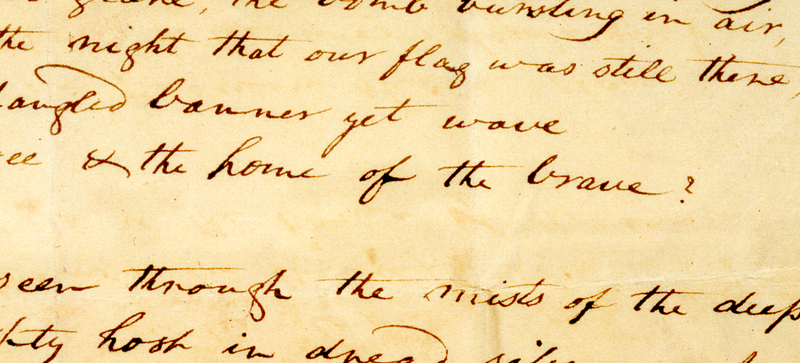 glare, the bomb bursting in air,
the night that our flag was still there,
spangled banner yet wave
ee & the home of the brave?
seen through the mists of the deep
host in dread